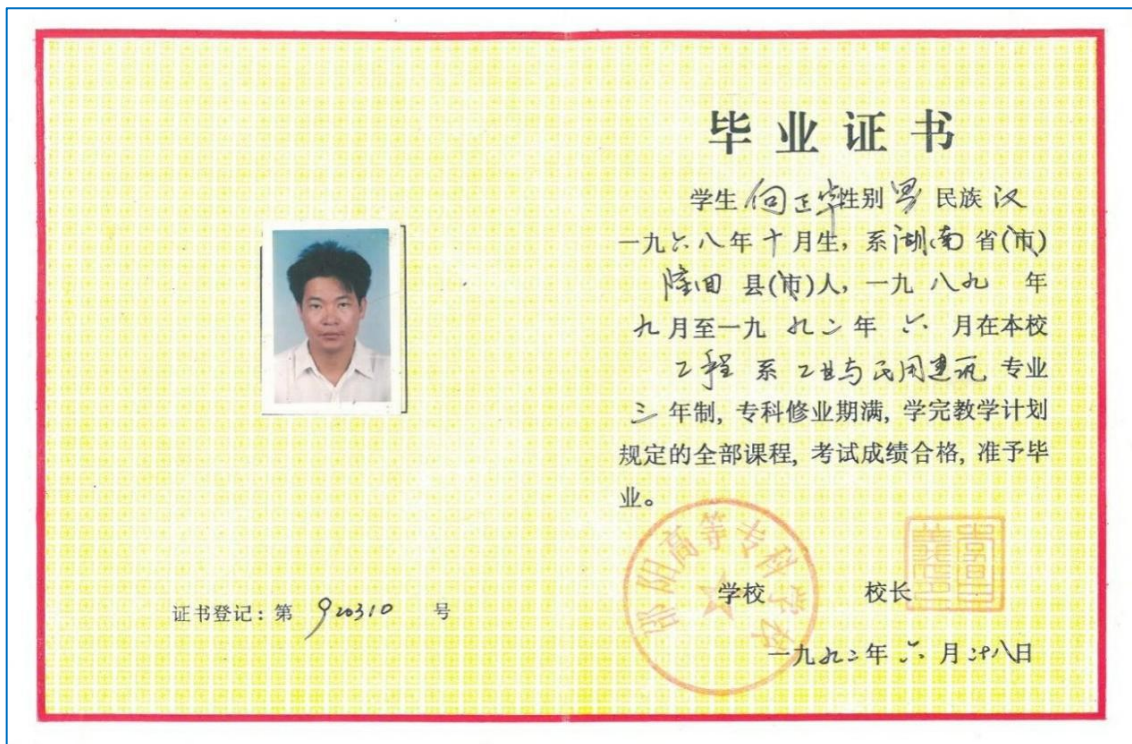 毕业证书
学生 向正华 性别 男 民族 汉
一九六八年十月生，系湖南省(市)
隆回 县(市)人，一九八九 年
九月至一九九二年 六 月在本校
工程 系 工业与民用建筑 专业
三 年制，专科修业期满，学完教学计划
规定的全部课程，考试成绩合格，准予毕
业。
邵阳高等专科学校
学校 校长
证书登记：第 920310 号
一九九二年 六 月 廿八日